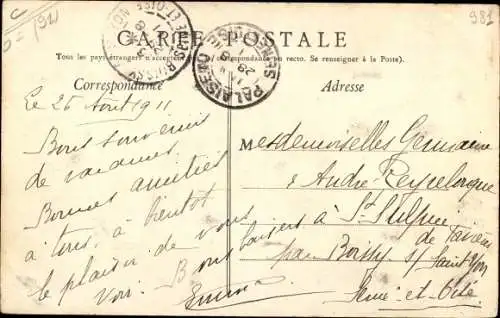 CARTE POSTALE
Tous les pays étrangers n'acceptent pas la correspondance au recto. Se renseigner à la Poste).
Correspondance
Adresse
987
PALAISEAU
SEINE-ET-OISE
Le 26 Août 1911
Bons souvenirs
de vacances.
Bonnes amitiés
à tous, à bientôt
le plaisir de vous
voir. Bons baisers à
Emma
Mesdemoiselles Germaine
& André
à St Sulpice
de Favières
par Boissy s/ Saint Yon
Seine-et-Oise